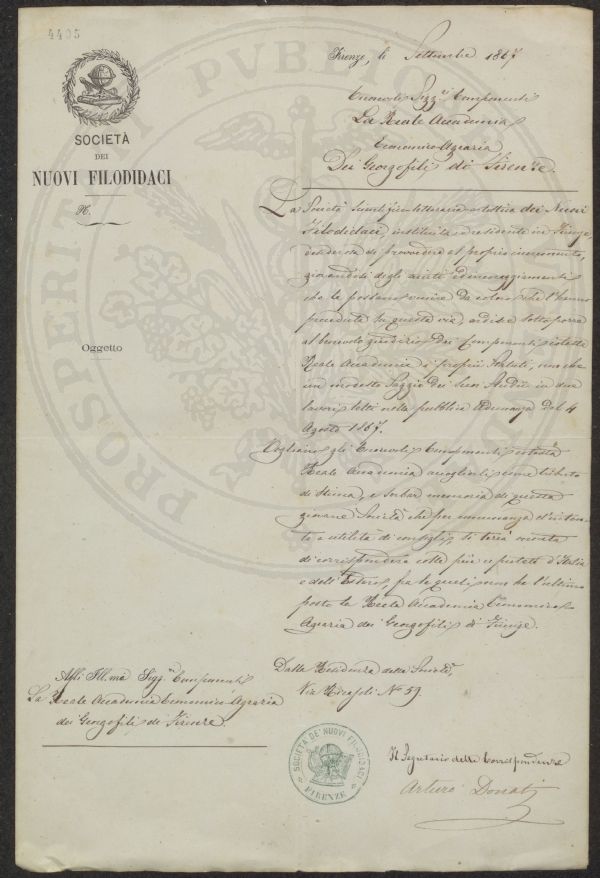 4495
SOCIETÀ
DEI
NUOVI FILODIDACI
N.
Oggetto
Firenze, li Settembre 1867
Onorevoli Sigg.ri Componenti
La Reale Accademia
Economico-Agraria
Dei Georgofili di Firenze.
La Società Scientifico-letteraria-artistica dei Nuovi
Filodidaci, instituita e residente in Firenze,
desiderosa di provvedere al proprio incremento,
giovandosi degli aiuti ed incoraggiamenti
che le possano venire da coloro che l'hanno
preceduta in questa via, ardisce sottoporre
al benevolo giudizio dei Componenti codesta
Reale Accademia i proprii Statuti, non che
un modesto Saggio dei suoi Studii in due
lavori letti nella pubblica adunanza del 4
Agosto 1867.
Vogliano gli Onorevoli Componenti codesta
Reale Accademia accoglierli come tributo
di Stima, e serbar memoria di questa
giovane Società che per comunanza d'inten-
ti e utilità di consiglio, si terrà onorata
di corrispondere colle più reputate d'Italia
e dell'Estero, fra le quali non ha l'ultimo
posto la Reale Accademia Economico
Agraria dei Georgofili di Firenze.
Dalla Residenza della Società,
Via Ricasoli N° 59
Agli Ill.mi Sigg.ri Componenti
La Reale Accademia Economico-Agraria
dei Georgofili di Firenze
SOCIETÀ DE' NUOVI FILODIDACI
FIRENZE
Il Segretario delle Corrispondenze
Arturo Donati
PROSPERITATI PVBLICAE